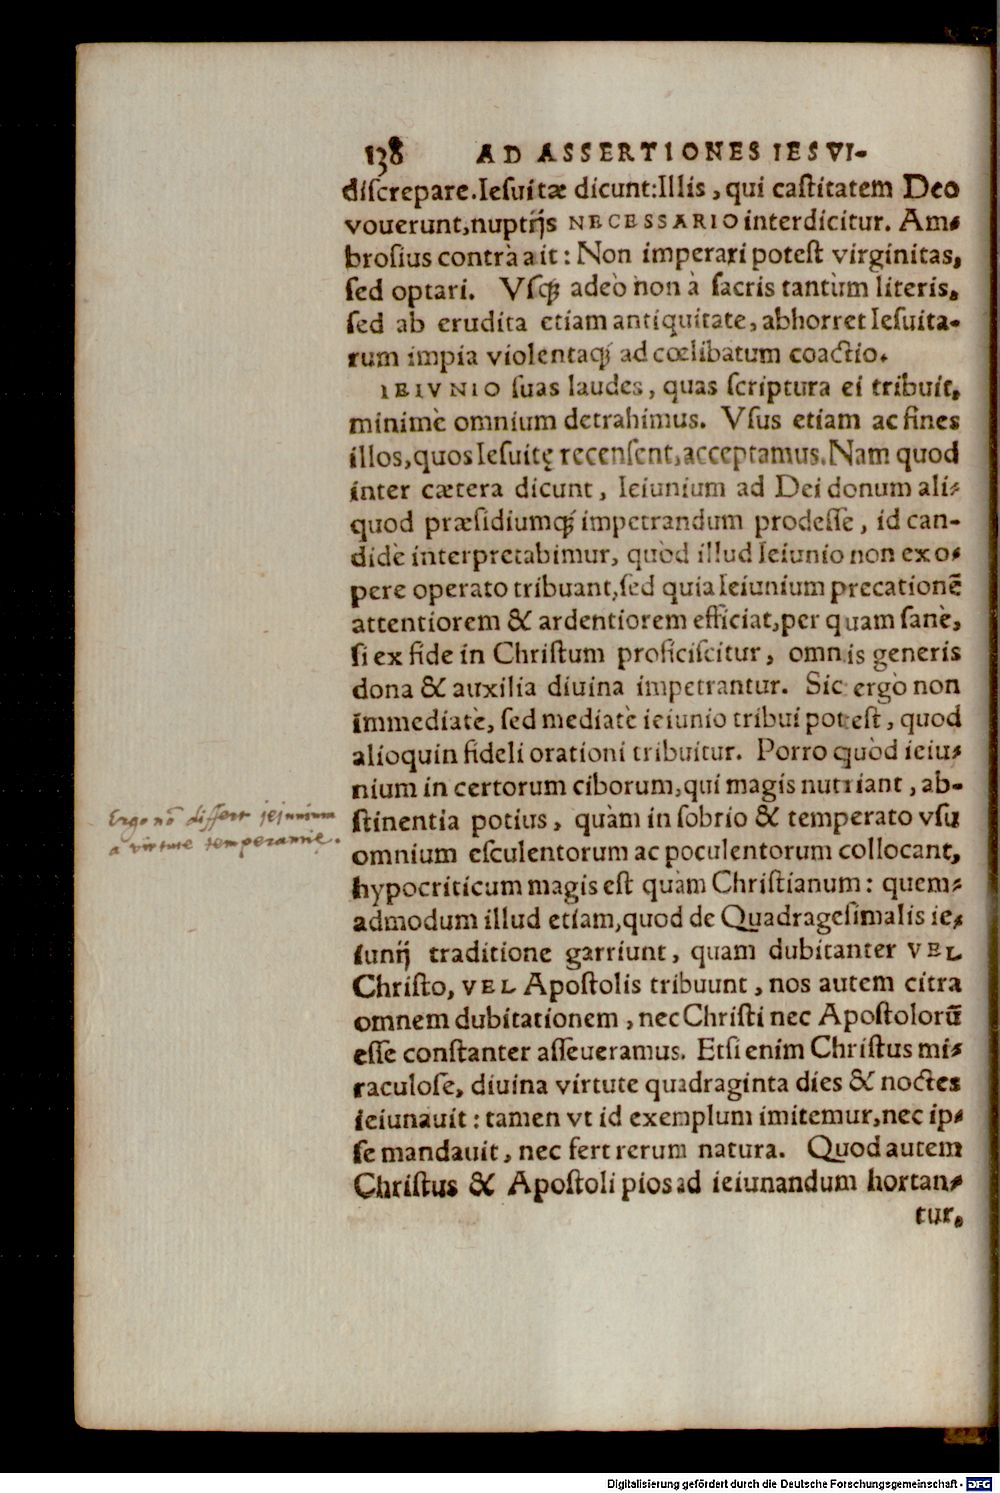 138 AD ASSERTIONES IESVI-
diſcrepare. Ieſuitæ dicunt: Illis, qui caſtitatem Deo
vouerunt, nuptijs NECESSARIO interdicitur. Am-
broſius contrà ait: Non imperari poteſt virginitas,
ſed optari. Vſq; adeò non à ſacris tantùm literis,
ſed ab erudita etiam antiquitate, abhorret Ieſuita-
rum impia violentaq; ad cœlibatum coactio.
IEIVNIO ſuas laudes, quas ſcriptura ei tribuit,
minimè omnium detrahimus. Vſus etiam ac fines
illos, quos Ieſuitę recenſent, acceptamus. Nam quod
inter cætera dicunt, Ieiunium ad Dei donum ali-
quod præſidiumq; impetrandum prodeſſe, id can-
didè interpretabimur, quòd illud Ieiunio non ex o-
pere operato tribuant, ſed quia Ieiunium precationē
attentiorem & ardentiorem efficiat, per quam ſanè,
ſi ex fide in Chriſtum proficiſcitur, omnis generis
dona & auxilia diuina impetrantur. Sic ergò non
immediatè, ſed mediatè ieiunio tribui poteſt, quod
alioquin fideli orationi tribuitur. Porro quòd ieiu-
nium in certorum ciborum, qui magis nutriant, ab-
ſtinentia potius, quàm in ſobrio & temperato vſu
omnium eſculentorum ac poculentorum collocant,
hypocriticum magis eſt quàm Chriſtianum: quem-
admodum illud etiam, quod de Quadrageſimalis ie-
iunij traditione garriunt, quam dubitanter VEL
Chriſto, VEL Apoſtolis tribuunt, nos autem citra
omnem dubitationem, nec Chriſti nec Apoſtolorū
eſſe conſtanter aſſeueramus. Etſi enim Chriſtus mi-
raculoſe, diuina virtute quadraginta dies & noctes
ieiunauit: tamen vt id exemplum imitemur, nec ip-
ſe mandauit, nec fert rerum natura. Quod autem
Chriſtus & Apoſtoli pios ad ieiunandum hortan-
tur,
Ergo nō differt jejunium
a virtute temperantię.
Digitalisierung gefördert durch die Deutsche Forschungsgemeinschaft - DFG